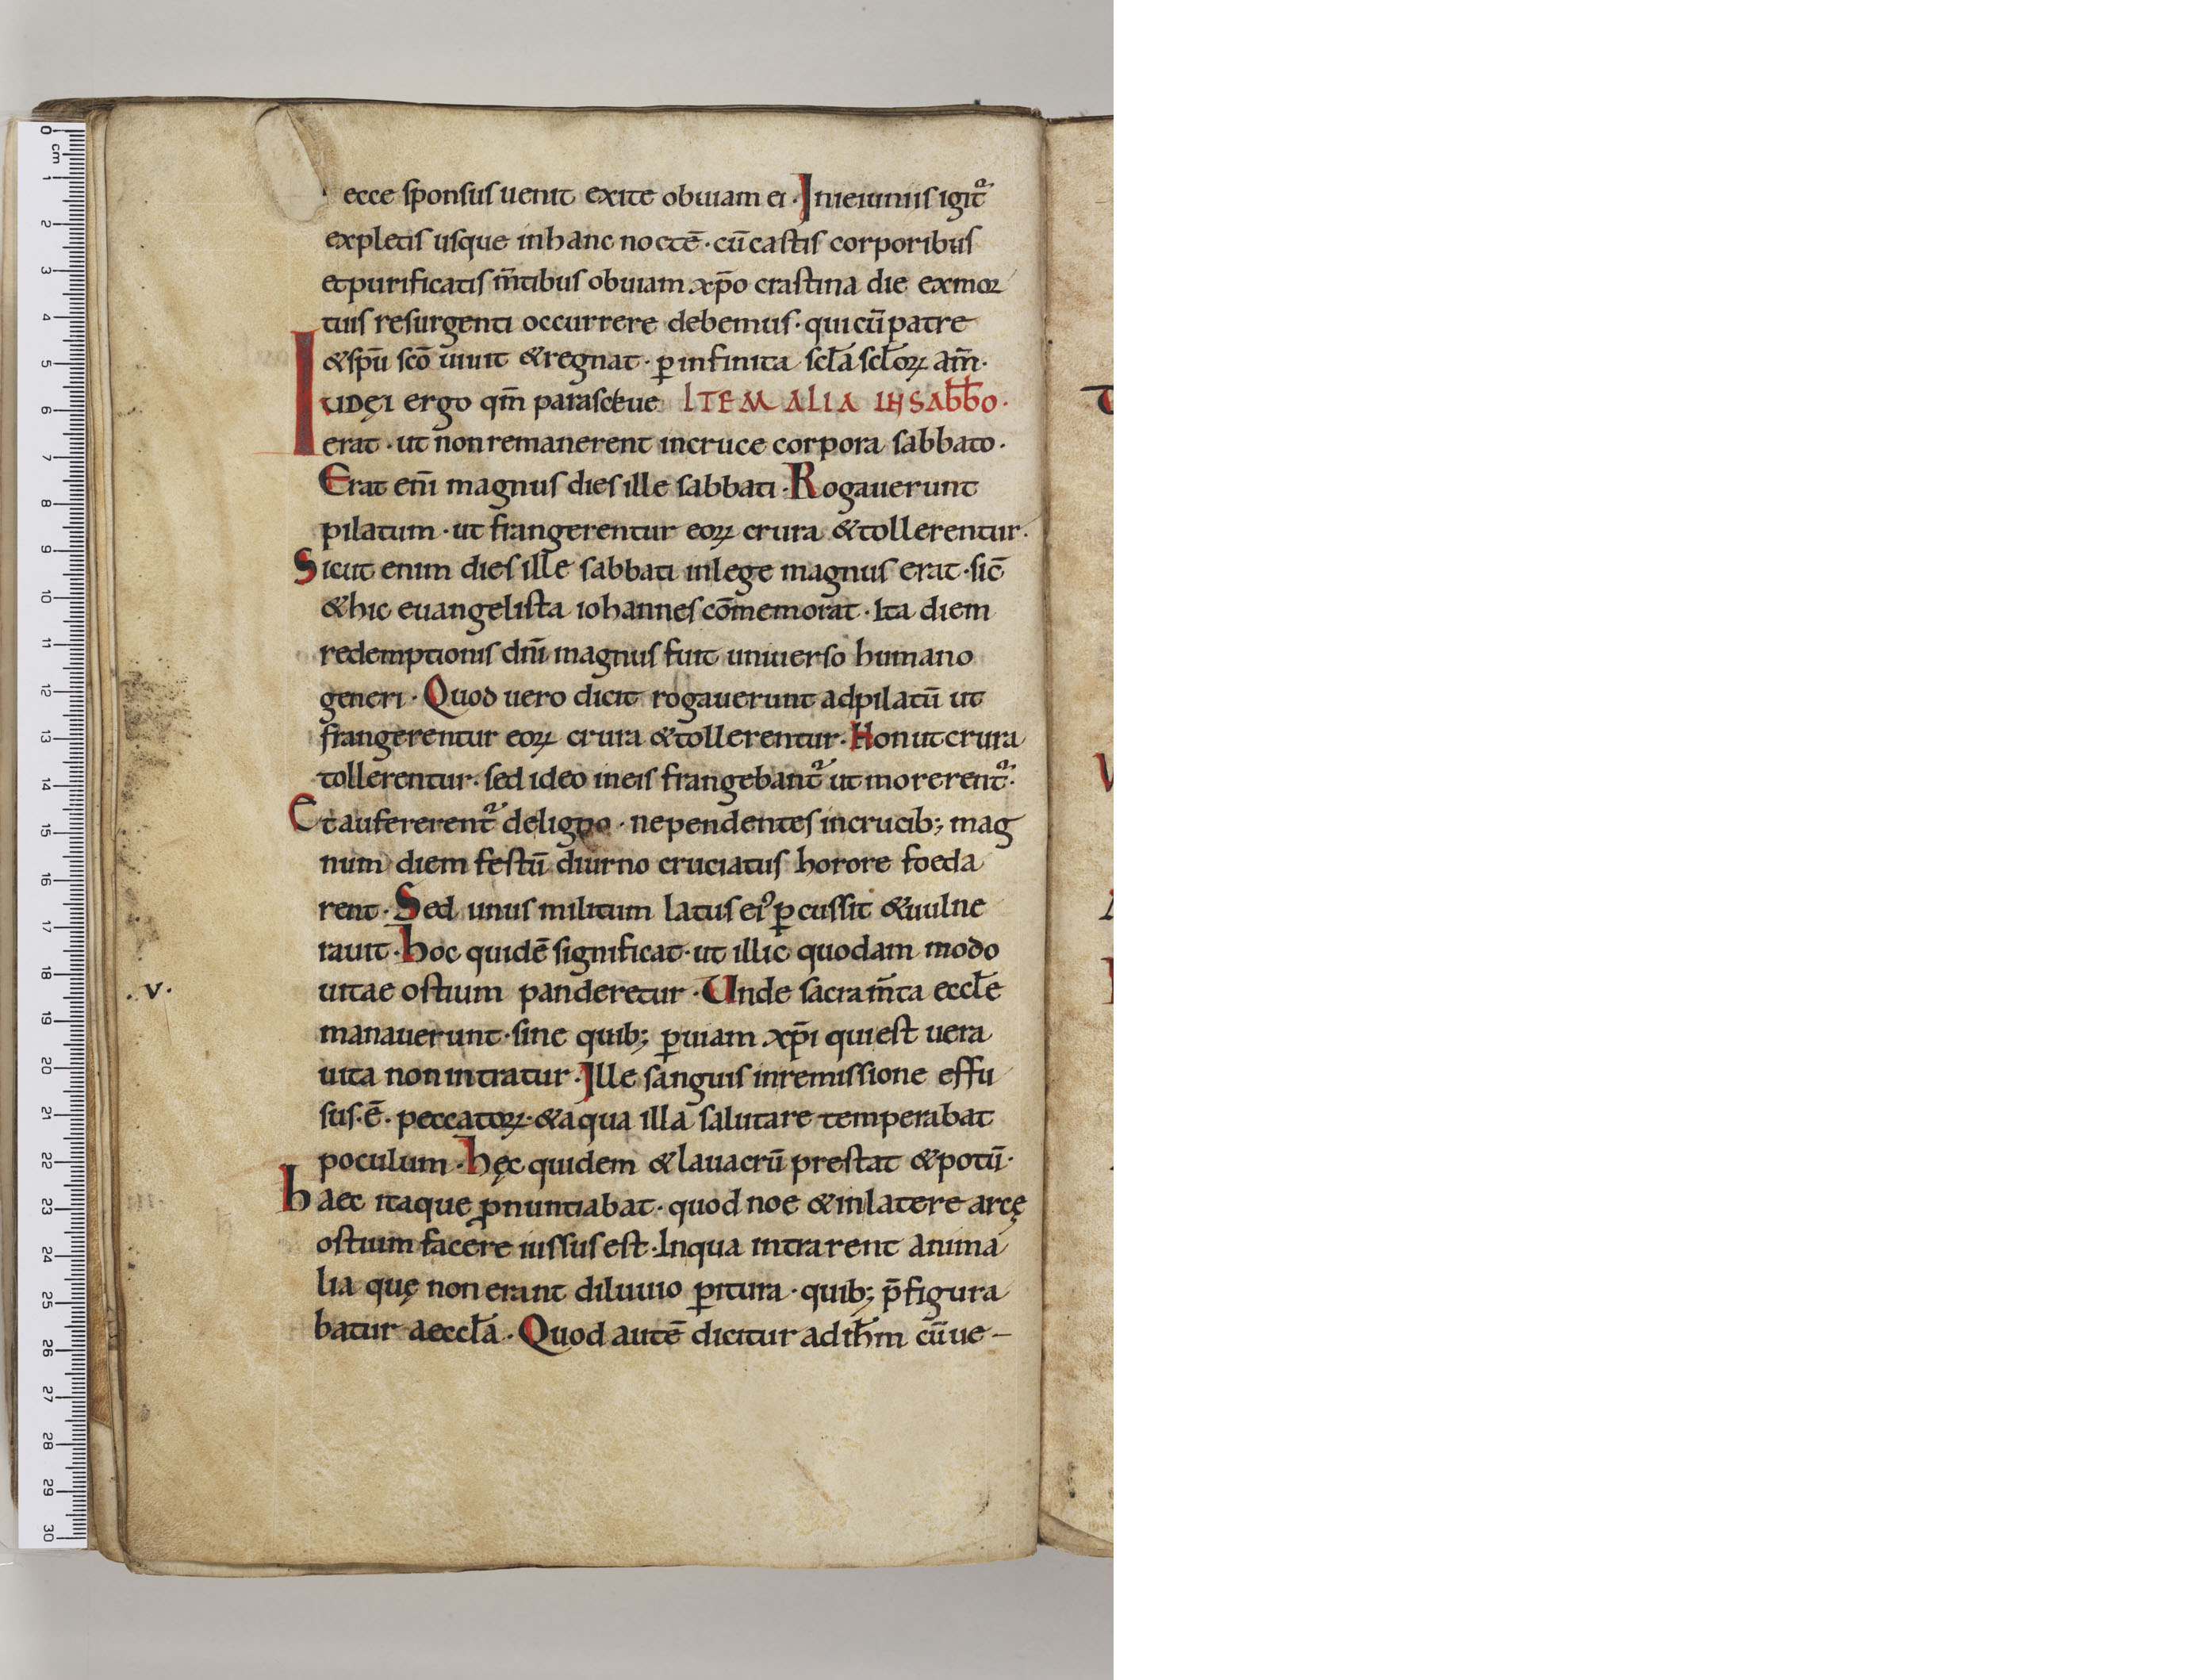 ecce sponsus uenit exite obuiam ei · Inieiuniis igit᷑
expletis usque inhanc noctē · cū castis corporibus
etpurificatis m̄tibus obuiam xp̄o crastina die exmoꝛ
tuis resurgenti occurrere debemus · quicū patre
&spū scō uiuit &regnat · ꝑ infinita scła scłoꝝ am̄ ·
IUDęI ergo qm̄ parasceue ITEM ALIA IN SAƀƀo ·
erat · ut nonremanerent incruce corpora sabbato ·
Erat eni᷑ magnus dies ille sabbati · Rogauerunt
pilatum · ut frangerentur eoꝝ crura &tollerentur ·
Sicut enim dies ille sabbati inlege magnus erat · sic̄
&hic euangelista iohannes cōmemorat · Ita diem
redemptionis dn̄i magnus fuit uniuerso humano
generi · Quod uero dicit rogauerunt adpilatū ut
frangerentur eoꝝ crura &tollerentur · Non utcrura
tollerentur · sed ideo ineis frangebant᷑ ut morerent᷑ ·
Et aufererent᷑ deligno · nependentes incrucib; mag
num diem festū diurno cruciatus horore foeda
rent · Sed unus militum latus eiꝰ ꝑcussit &uulne
rauit · hoc quidē significat · ut illic quodam modo
uitae ostium panderetur · Unde sacram̄ta eccłe
. v . manauerunt · sine quib; ꝑuiam xp̄i quiest uera
uita nonintratur · Ille sanguis inremissione effu
sus · ē · peccatoꝝ · &aqua illa salutare temperabat
poculum · hęc quidem &lauacrū prestat &potū ·
haec itaque ꝓnuntiabat · quod noe &inlatere arcę
ostium facere iussus est · Inqua intrarent anima
lia quę non erant diluuio ꝑitura · quib; p̄figura
batur aeccła · Quod autē dicitur adiħm cū ue –